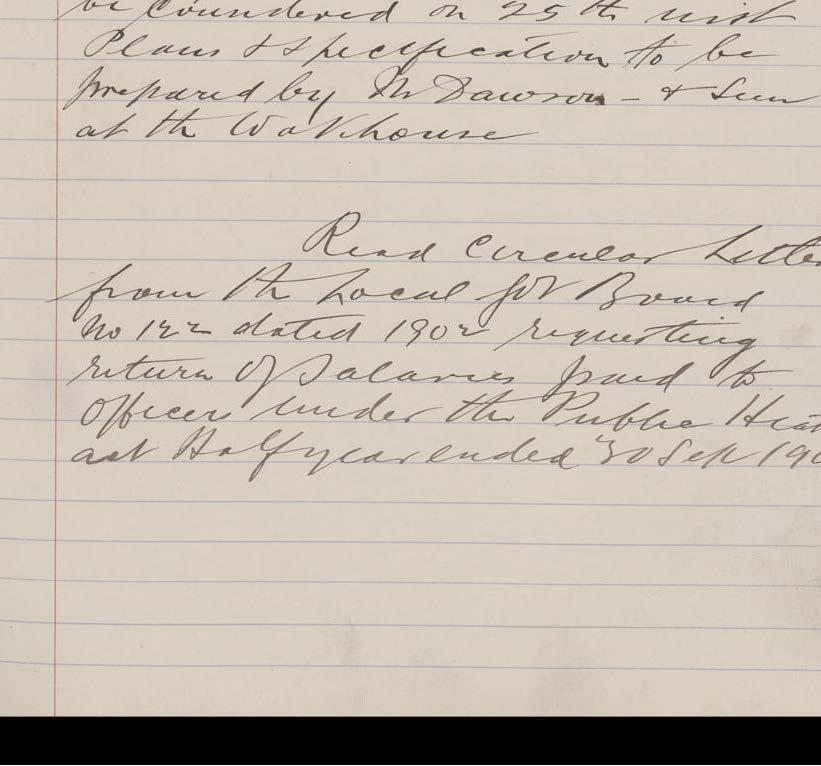 be considered on 25th inst
Plans & specification to be
prepared by Mr Dawson - & Seen
at the Workhouse
Read Circular Letter
from the Local Gov Board
No 122 dated 1902 requesting
return of Salaries paid to
Officers under the Public Heal
act Half year ended 30 Sep 190